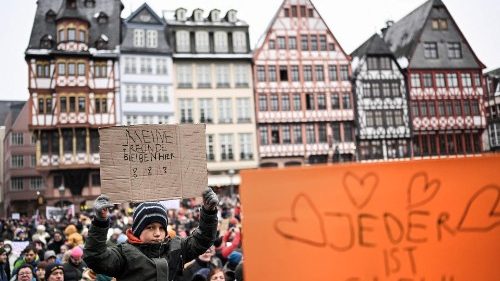 MEINE
FREUNDE
BLEIBEN HIER
! ! !
JEDER
IST